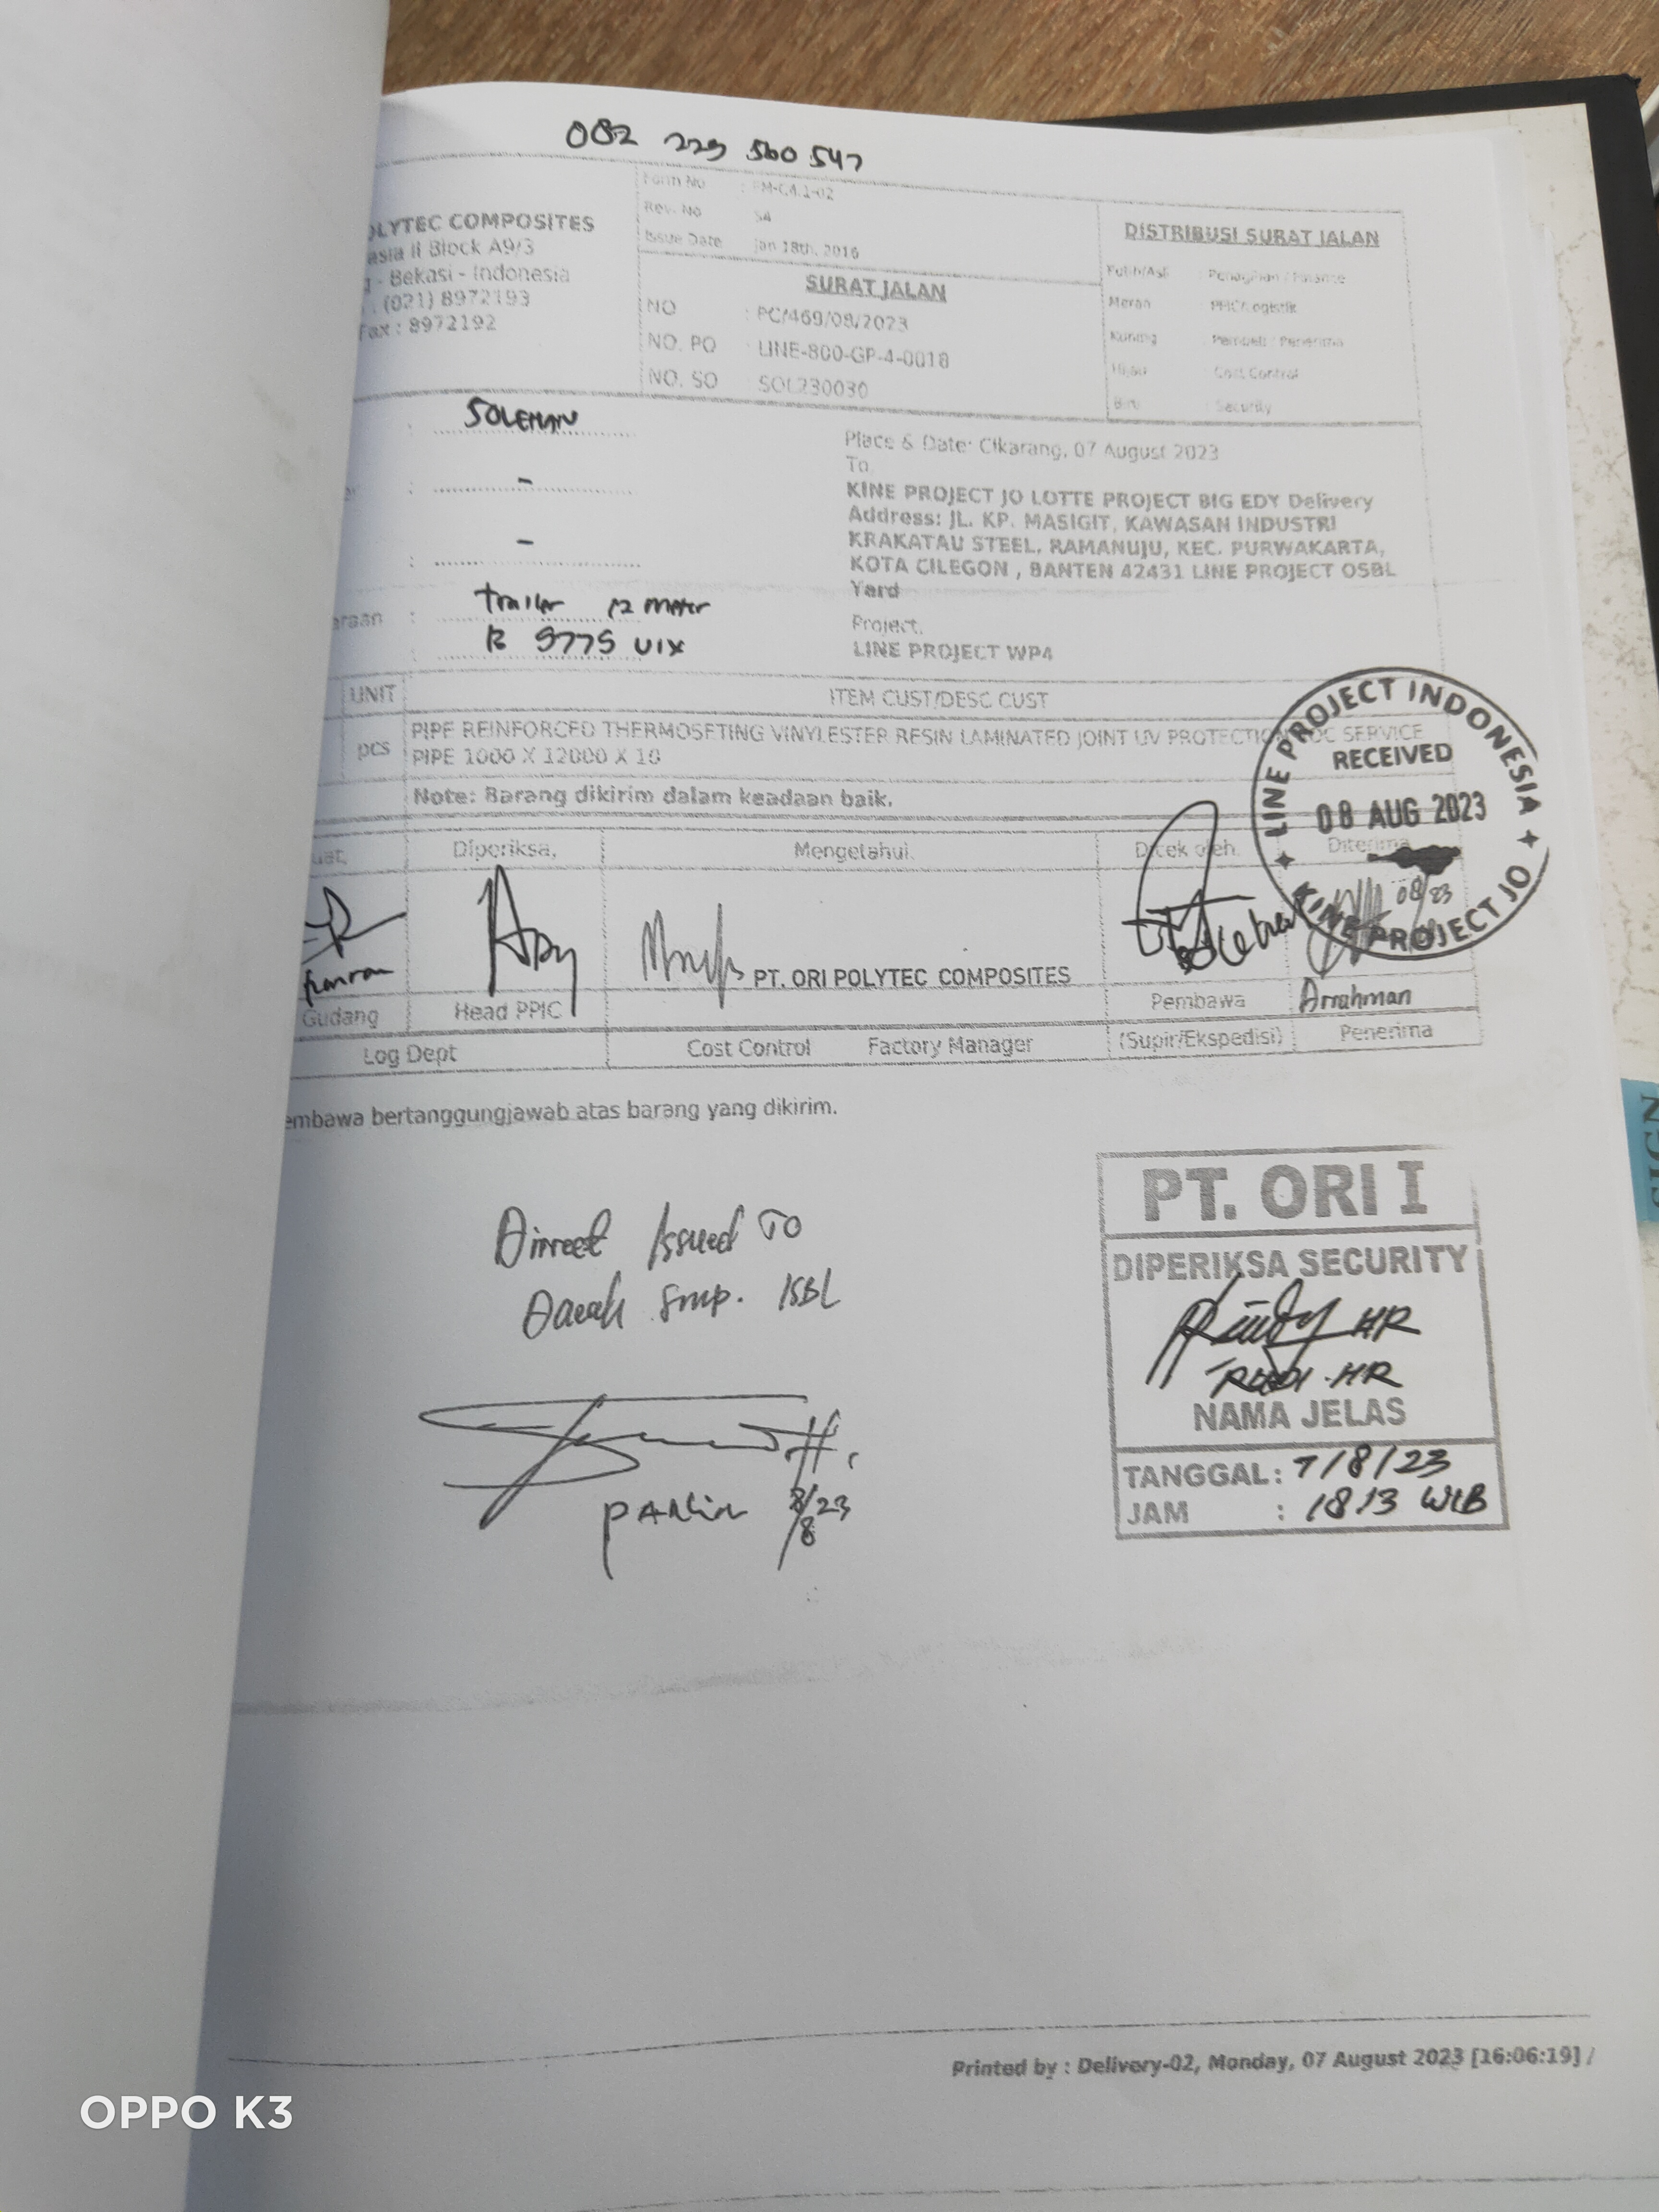 082 229 560 547
OLYTEC COMPOSITES
asia II Block A9/3
g - Bekasi - Indonesia
. (021) 8972193
Fax : 8972192
Form No : FM-C4.1-02
Rev. No 54
Issue Date Jan 18th, 2016
SURAT JALAN
NO : PC/469/08/2023
NO. PO LINE-800-GP-4-0018
NO. SO SOL230030
DISTRIBUSI SURAT JALAN
Putih/Asli : Penagihan / Finance
Merah PPIC/Logistik
Kuning Pembeli / Penerima
Hijau : Cost Control
Biru : Security
: SOLEMAN
: -
: -
araan : trailer 12 meter
: B 9775 UIX
Place & Date: Cikarang, 07 August 2023
To
KINE PROJECT JO LOTTE PROJECT BIG EDY Delivery
Address: JL. KP. MASIGIT, KAWASAN INDUSTRI
KRAKATAU STEEL, RAMANUJU, KEC. PURWAKARTA,
KOTA CILEGON , BANTEN 42431 LINE PROJECT OSBL
Yard
Project.
LINE PROJECT WP4
UNIT ITEM CUST/DESC CUST
pcs PIPE REINFORCED THERMOSETING VINYLESTER RESIN LAMINATED JOINT UV PROTECTION SERVICE
PIPE 1000 X 12000 X 10
Note: Barang dikirim dalam keadaan baik.
LINE PROJECT INDONESIA
RECEIVED
08 AUG 2023
KINE PROJECT JO
uat, Diperiksa, Mengetahui. Dicek oleh. Diterima
08/23
PT. ORI POLYTEC COMPOSITES
Gudang Head PPIC Pembawa Arrahman
Log Dept Cost Control Factory Manager (Supir/Ekspedisi) Penerima
embawa bertanggungjawab atas barang yang dikirim.
Direct Issued To
Daeah Smp. ISBL
8/23
8
PT. ORI I
DIPERIKSA SECURITY
RUDI . HR
NAMA JELAS
TANGGAL : 7/8/23
JAM : 18.13 WIB
Printed by : Delivery-02, Monday, 07 August 2023 [16:06:19] /
OPPO K3